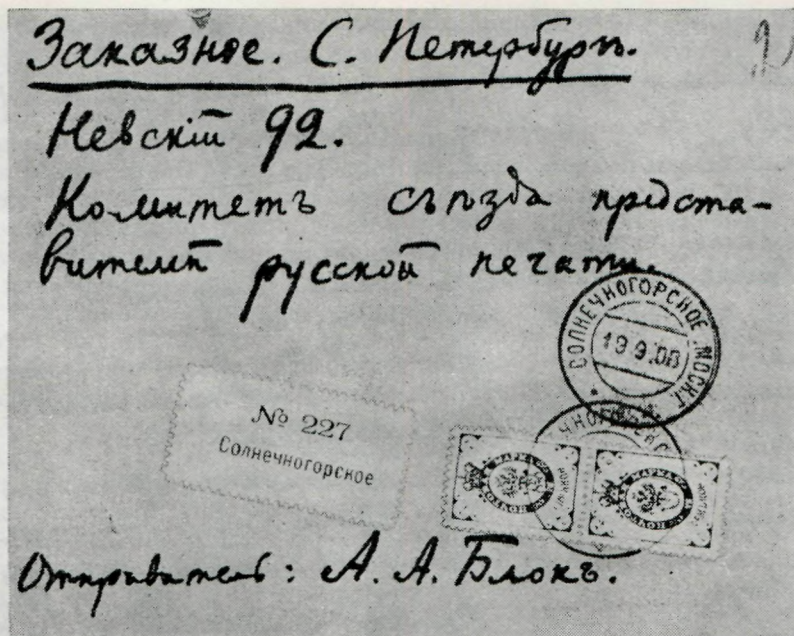 Заказное. С. Петербургъ.
Невскій 92.
Комитетъ съѣзда предста-
вителей русской печати.
СОЛНЕЧНОГОРСКОЕ МОСК. Г.
19.9.08
№ 227
Солнечногорское
МАРКА
МАРКА
Отправитель: А. А. Блокъ.